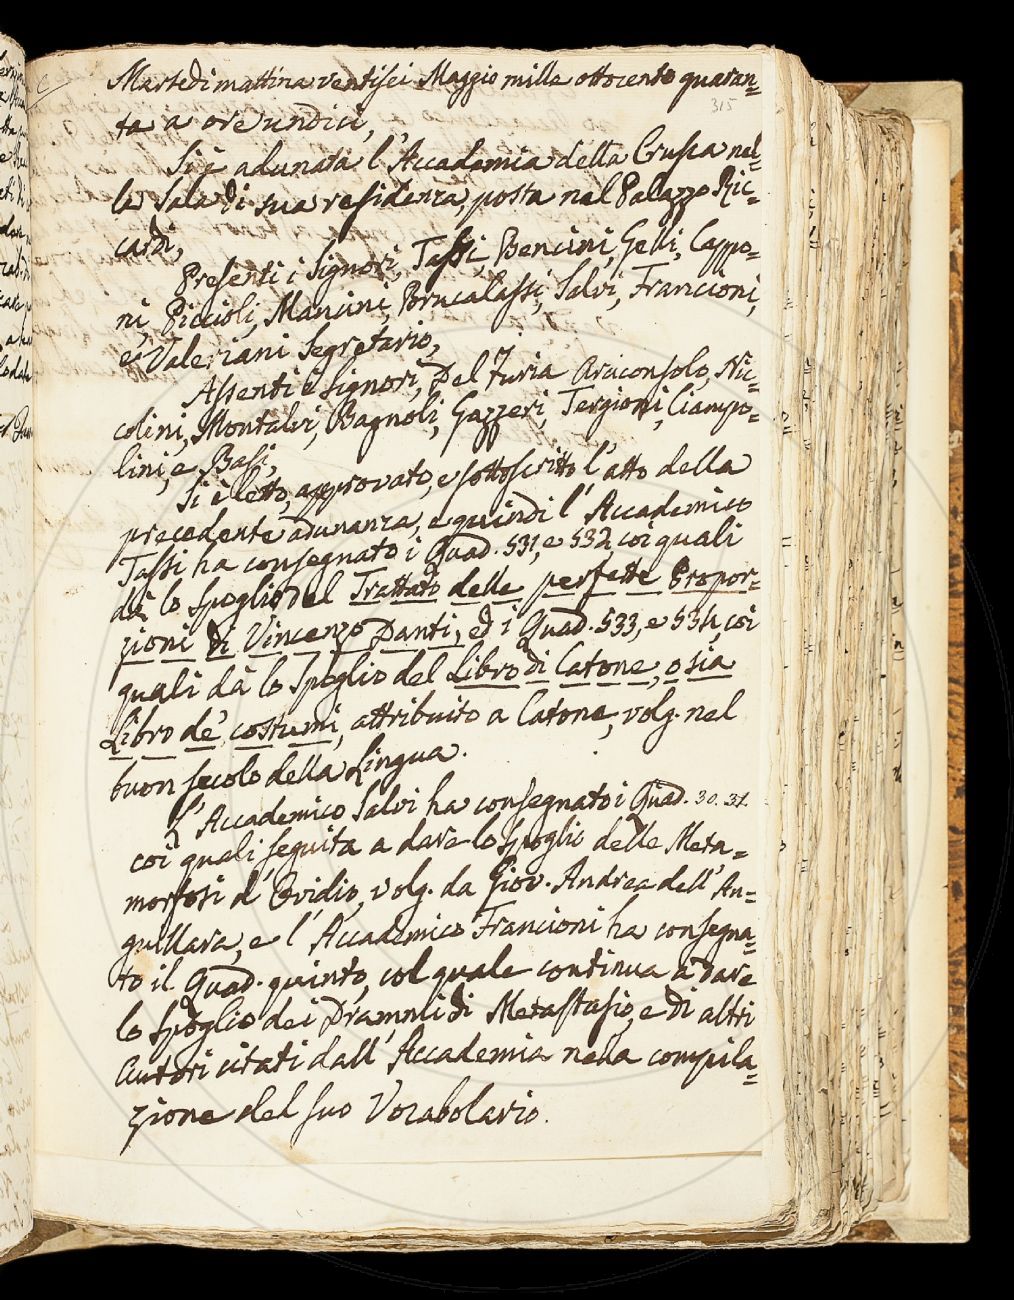 Martedi mattina ventisei Maggio mille ottocento quaran=
315
ta a ore undici,
Si è adunata l'Accademia della Crusca nel=
la Sala di sua residenza, posta nel Palazzo Ric=
cardi,
Presenti i Signori, Tassi, Bencini, Gelli, Cappo=
ni, Piccioli, Mancini, Brucalassi, Salvi, Francioni,
e Valeriani Segretario,
Assenti i Signori, Del Furia Arciconsolo, Nic=
colini, Montalvi, Bagnoli, Gazzeri, Tergioni, Ciampo=
lini, e Basi,
Si è letto, approvato, e sottoscritto l'atto della
precedente adunanza, e quindi l'Accademico
Tassi ha consegnato i Quad. 531, e 532, coi quali
dà lo Spoglio del Trattato delle perfette Propor=
zioni di Vincenzo Danti, ed i Quad. 533, e 534, coi
quali dà lo Spoglio del Libro di Catone, o sia
Libro de' costumi, attribuito a Catone, volg. nel
buon secolo della Lingua.
L'Accademico Salvi ha consegnato i Quad. 30. 31.
coi quali seguita a dare lo Spoglio delle Meta=
morfosi d'Ovidio, volg. da Giov. Andrea dell'An=
guillara, e l'Accademico Francioni ha consegna=
to il Quad. quinto, col quale continua a dare
lo Spoglio dei Drammi di Metastasio, e di altri
Autori citati dall'Accademia nella compila=
zione del suo Vocabolario.